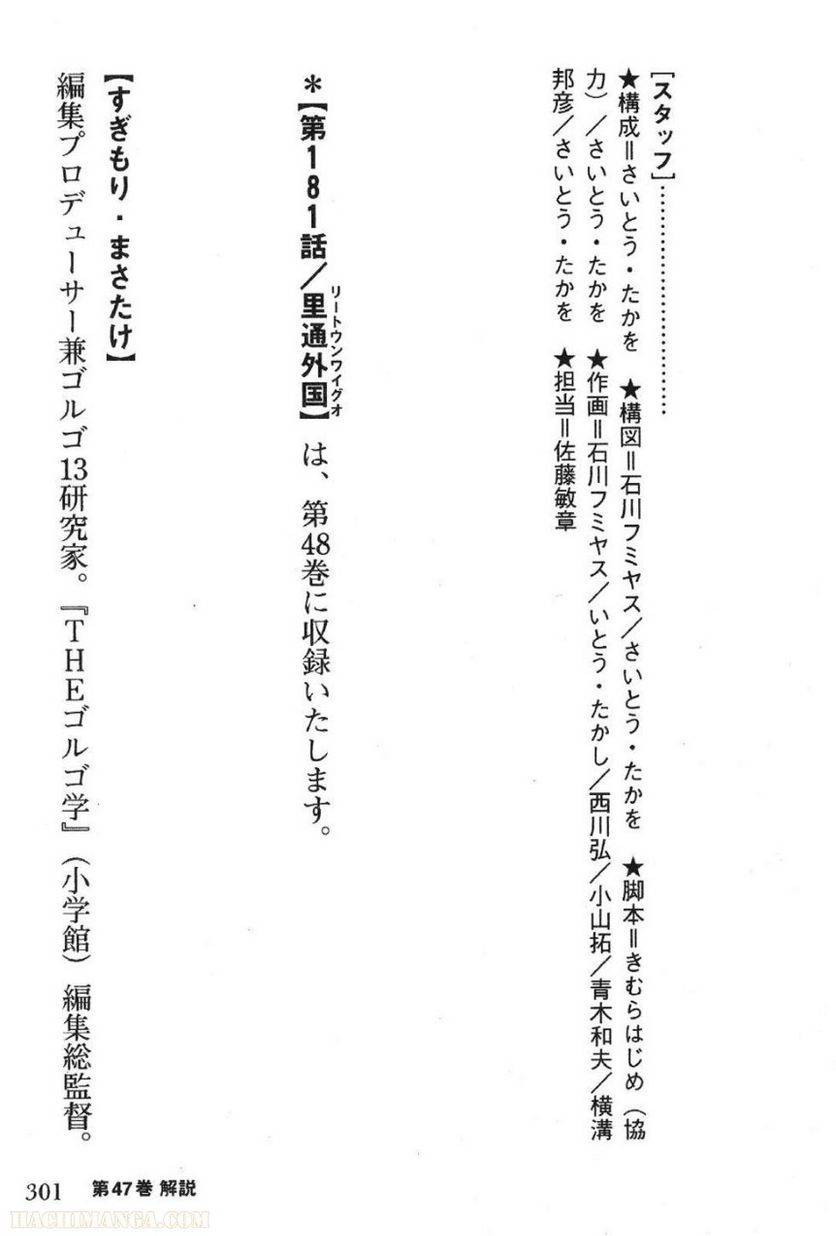 [スタッフ]……………………………
★構成＝さいとう・たかを　★構図＝石川フミヤス／さいとう・たかを　★脚本＝きむらはじめ（協
力）／さいとう・たかを　★作画＝石川フミヤス／いとう・たかし／西川弘／小山拓／青木和夫／横溝
邦彦／さいとう・たかを　★担当＝佐藤敏章
＊【第181話／里通外国】は、第48巻に収録いたします。
リートウンワイグオ
【すぎもり・まさたけ】
編集プロデューサー兼ゴルゴ13研究家。『THEゴルゴ学』（小学館）編集総監督。
301　第47巻 解説
HACHIMANGA.COM